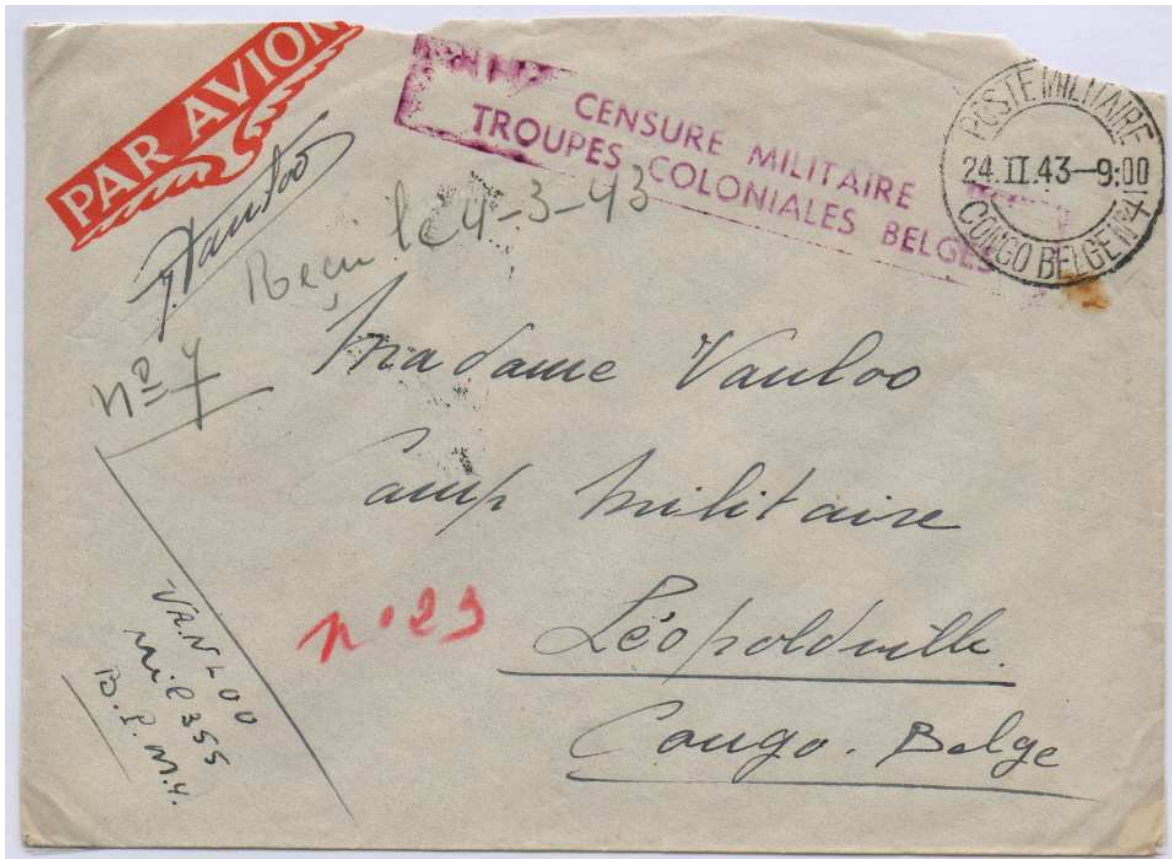 PAR AVION
CENSURE MILITAIRE
TROUPES COLONIALES BELGES
POSTE MILITAIRE
24.II.43–9:00
CONGO BELGE Nº4
J. Vanloo
Reçu le 4-3-43
Nº 4
Madame Vanloo
Camp Militaire
Léopoldville.
Congo. Belge
nº 23
VANLOO
mil 355
B.P.M.4.